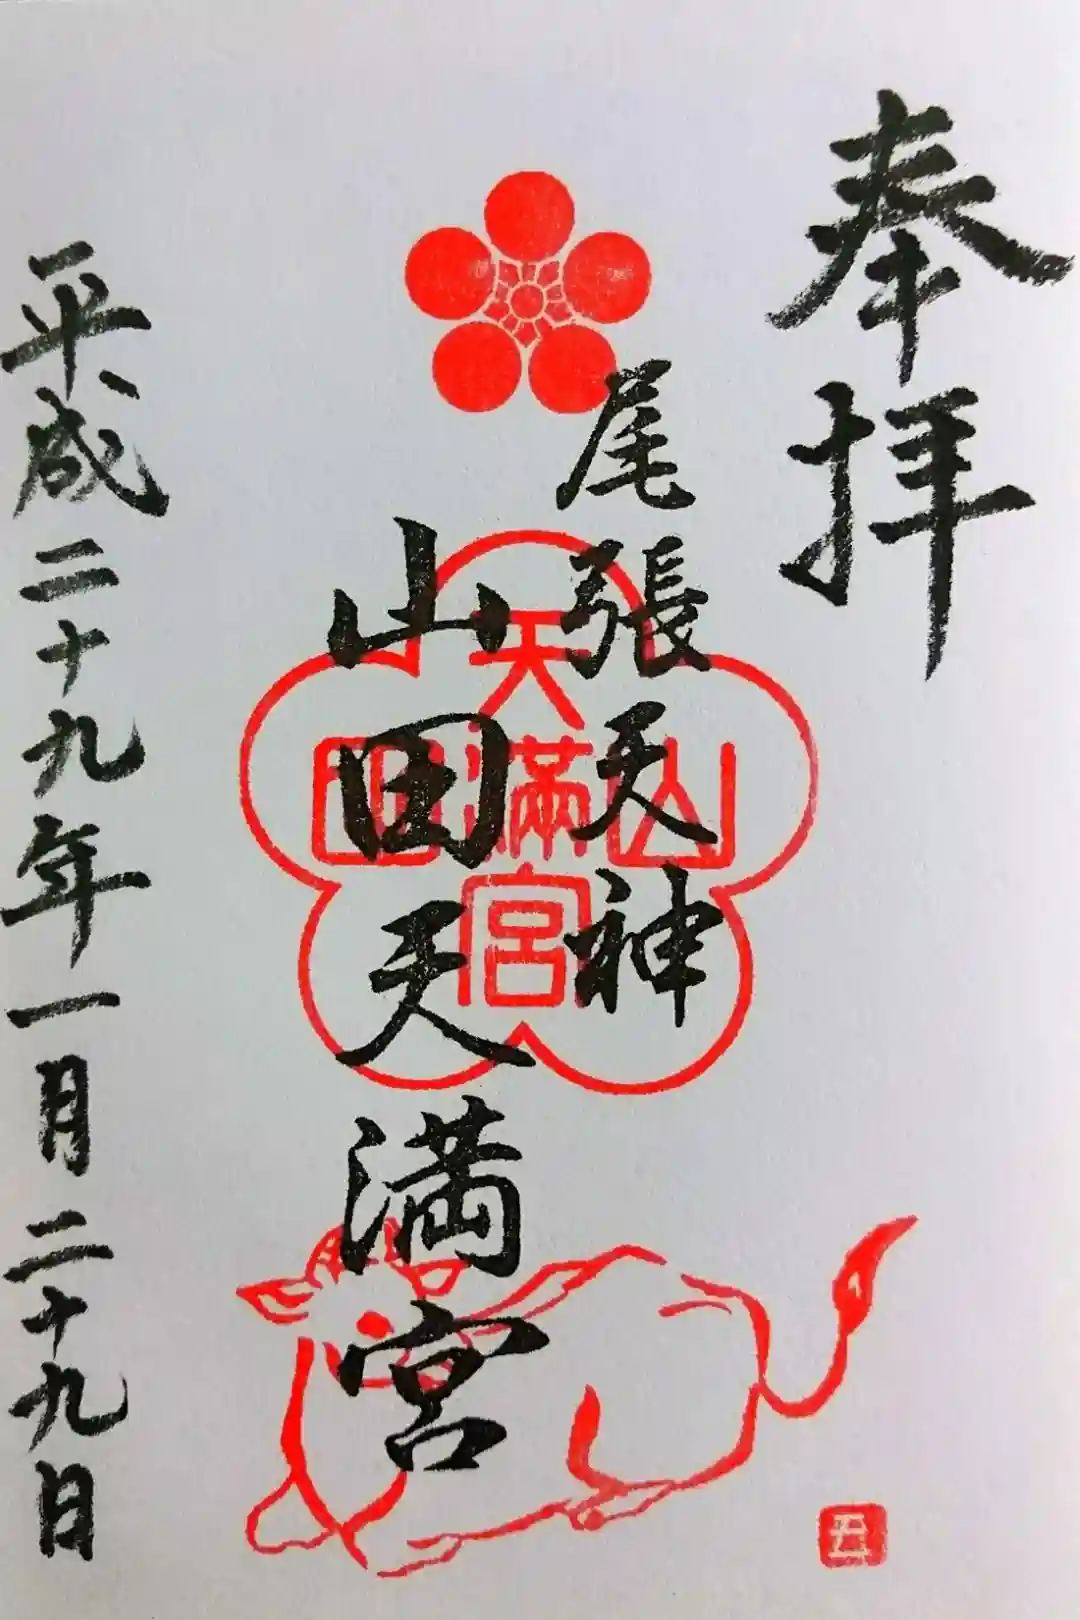 奉拝
尾張天神
山田天満宮
天満宮
山田
平成二十九年一月二十九日